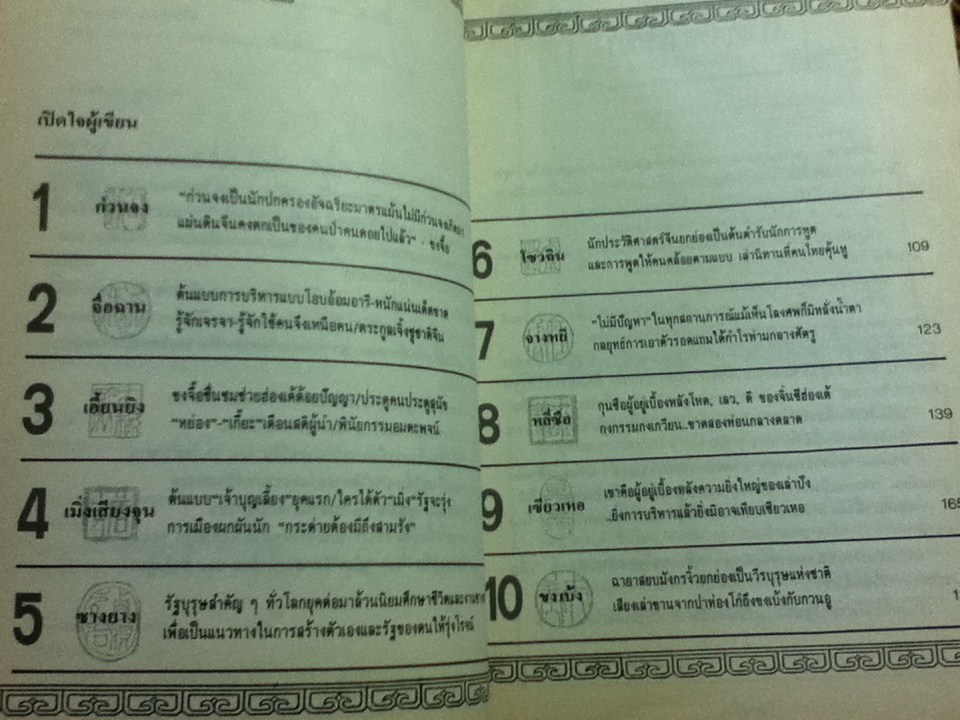 เปิดใจผู้เขียน
1
ก่วนจง
"ก่วนจงเป็นนักปกครองอัจฉริยะมาตรแม้นไม่มีก่วนจง
แผ่นดินจีนคงตกเป็นของคนป่าคนดอยไปแล้ว" - ขงจื้อ
2
จื่อฉาน
ต้นแบบการบริหารแบบโอบอ้อมอารี-หนักแน่นเด็ดขาด
รู้จักเจรจา-รู้จักใช้คนจึงเหนือคน/ตระกูลเจิ้งชูชาติจีน
3
เอี้ยนยิง
ขงจื้อชื่นชมช่วยฮ่องเต้ด้อยปัญญา/ประตูคนประตูสุนัข
"หย่อง"-"เกี๊ยะ"เตือนสติผู้นำ/พินัยกรรมอมตะพจน์
4
เมิ่งเสียงจุน
ต้นแบบ"เจ้าบุญเลี้ยง"ยุคแรก/ใครได้ตัว"เมิ่ง"รัฐจะรุ่ง
การเมืองผกผันนัก "กระต่ายต้องมีถึงสามรัง"
5
ซางยาง
รัฐบุรุษสำคัญ ๆ ทั่วโลกยุคต่อมาล้วนนิยมศึกษาชีวิตและงาน
เพื่อเป็นแนวทางในการสร้างตัวเองและรัฐของตนให้รุ่งโรจน์
6
โซวฉิน
นักประวัติศาสตร์จีนยกย่องเป็นต้นตำรับนักการทูต
และการพูดให้คนคล้อยตามแบบ เล่านิทานที่คนไทยคุ้นหู
109
7
จางหยี
"ไม่มีปัญหา"ในทุกสถานการณ์แม้เห็นโลงศพก็มิหลั่งน้ำตา
กลยุทธ์การเอาตัวรอดแถมได้กำไรท่ามกลางศัตรู
123
8
หลี่ซือ
กุนซือผู้อยู่เบื้องหลังโหด, เลว, ดี ของจิ๋นซีฮ่องเต้
กงกรรมกงเกวียน..ขาดสองท่อนกลางตลาด
139
9
เซียวเหอ
เขาคือผู้อยู่เบื้องหลังความยิ่งใหญ่ของเล่าปัง
..ยิ่งการบริหารแล้วยิ่งมิอาจเทียบเซียวเหอ
165
10
ขงเบ้ง
ฉายาสยบมังกรจิ๋วยกย่องเป็นวีรบุรุษแห่งชาติ
เสียงเล่าขานจากปาท่องโก๋ถึงขงเบ้งกับกวนอู